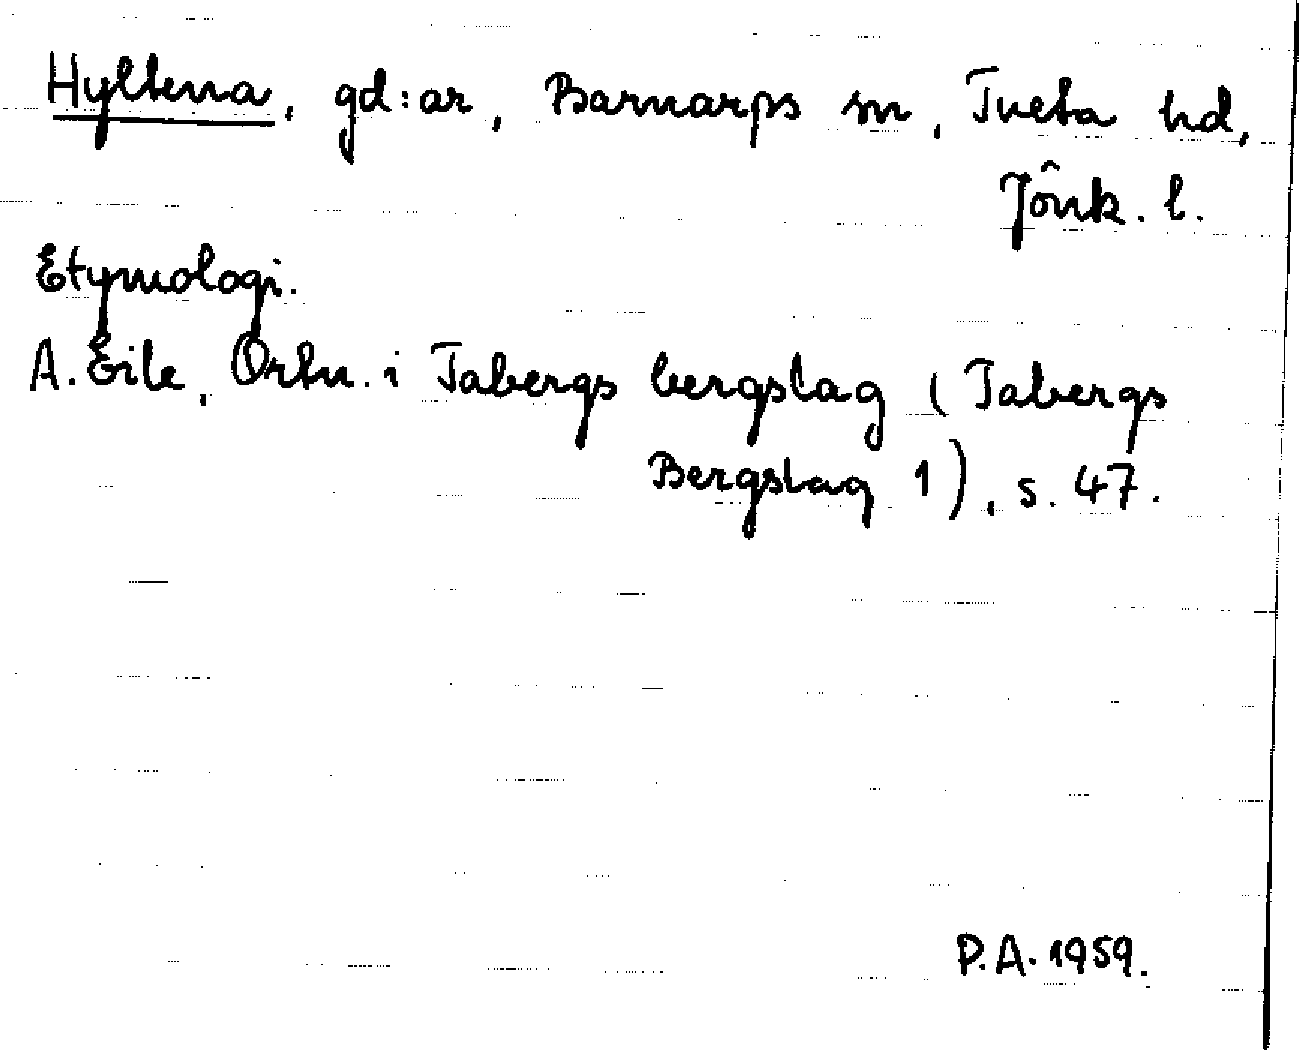 Hyltena, gd:ar, Barnarps sn, Tveta hd,
Jönk. l.
Etymologi.
A. Eile, Ortn. i Tabergs bergslag (Tabergs
Bergslag 1), s. 47.
P.A. 1959.